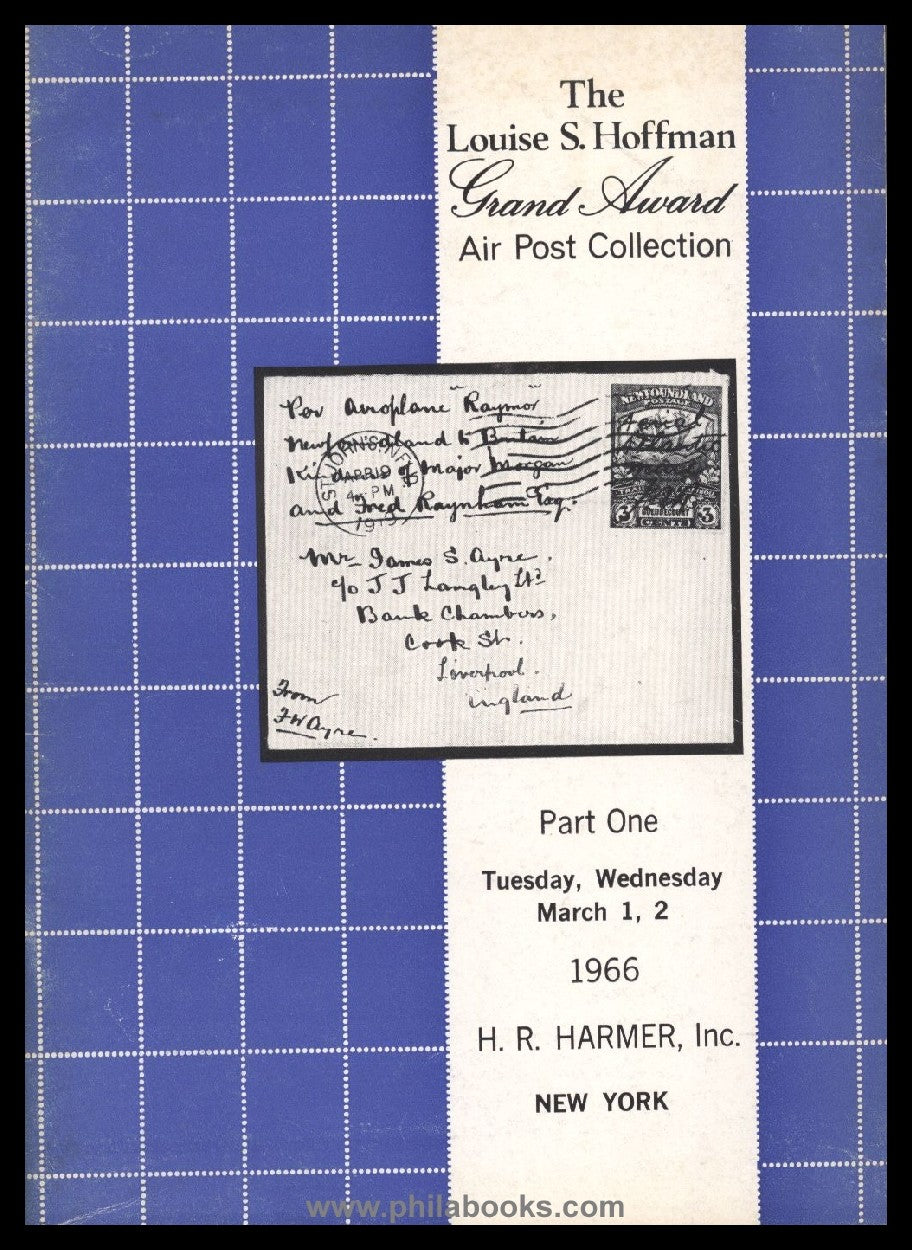 The
Louise S. Hoffman
Grand Award
Air Post Collection
Per Aeroplane "Raymor"
Newfoundland to Britain
Kindness of Major Morgan
and Fred Raynham Esq.
ST. JOHN'S NFLD
APR 19
4 PM
1919
NEWFOUNDLAND
POSTAGE
Aerial
Atlantic
Mail
3 CENTS 3
Mr James S. Ayre.
c/o J J Langley Ltd
Bank Chambers,
Cook St.
Liverpool.
England
From
FW Ayre.
Part One
Tuesday, Wednesday
March 1, 2
1966
H. R. HARMER, Inc.
NEW YORK
www.philabooks.com